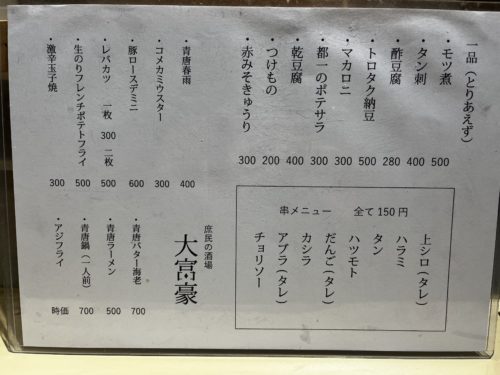 一品(とりあえず)
・モツ煮 500
・タン刺 400
・酢豆腐 280
・トロタク納豆 500
・マカロニ 300
・都一のポテサラ 300
・乾豆腐 400
・つけもの 200
・赤みそきゅうり 300
・青唐春雨 400
・コメカミウスター 300
・豚ロースデミニ 600
・レバカツ 一枚 300 二枚 500
・生のりフレンチポテトフライ 500
・激辛玉子焼 300
串メニュー 全て150円
上シロ(タレ)
ハラミ
タン
ハツモト
だんご(タレ)
カシラ
アブラ(タレ)
チョリソー
庶民の酒場
大富豪
・青唐バター海老 700
・青唐ラーメン 500
・青唐鍋(一人前) 700
・アジフライ 時価